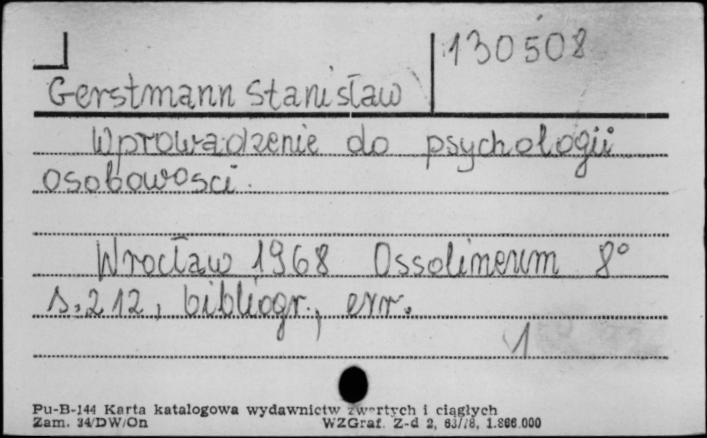 130508
Gerstmann Stanisław
Wprowadzenie do psychologii
osobowosci.
Wrocław 1968 Ossolineum 8°
s. 212, bibliogr., err.
1
Pu-B-144 Karta katalogowa wydawnictw zwartych i ciągłych
Zam. 34/DW/On WZGraf. Z-d 2, 63/78, 1.866.000